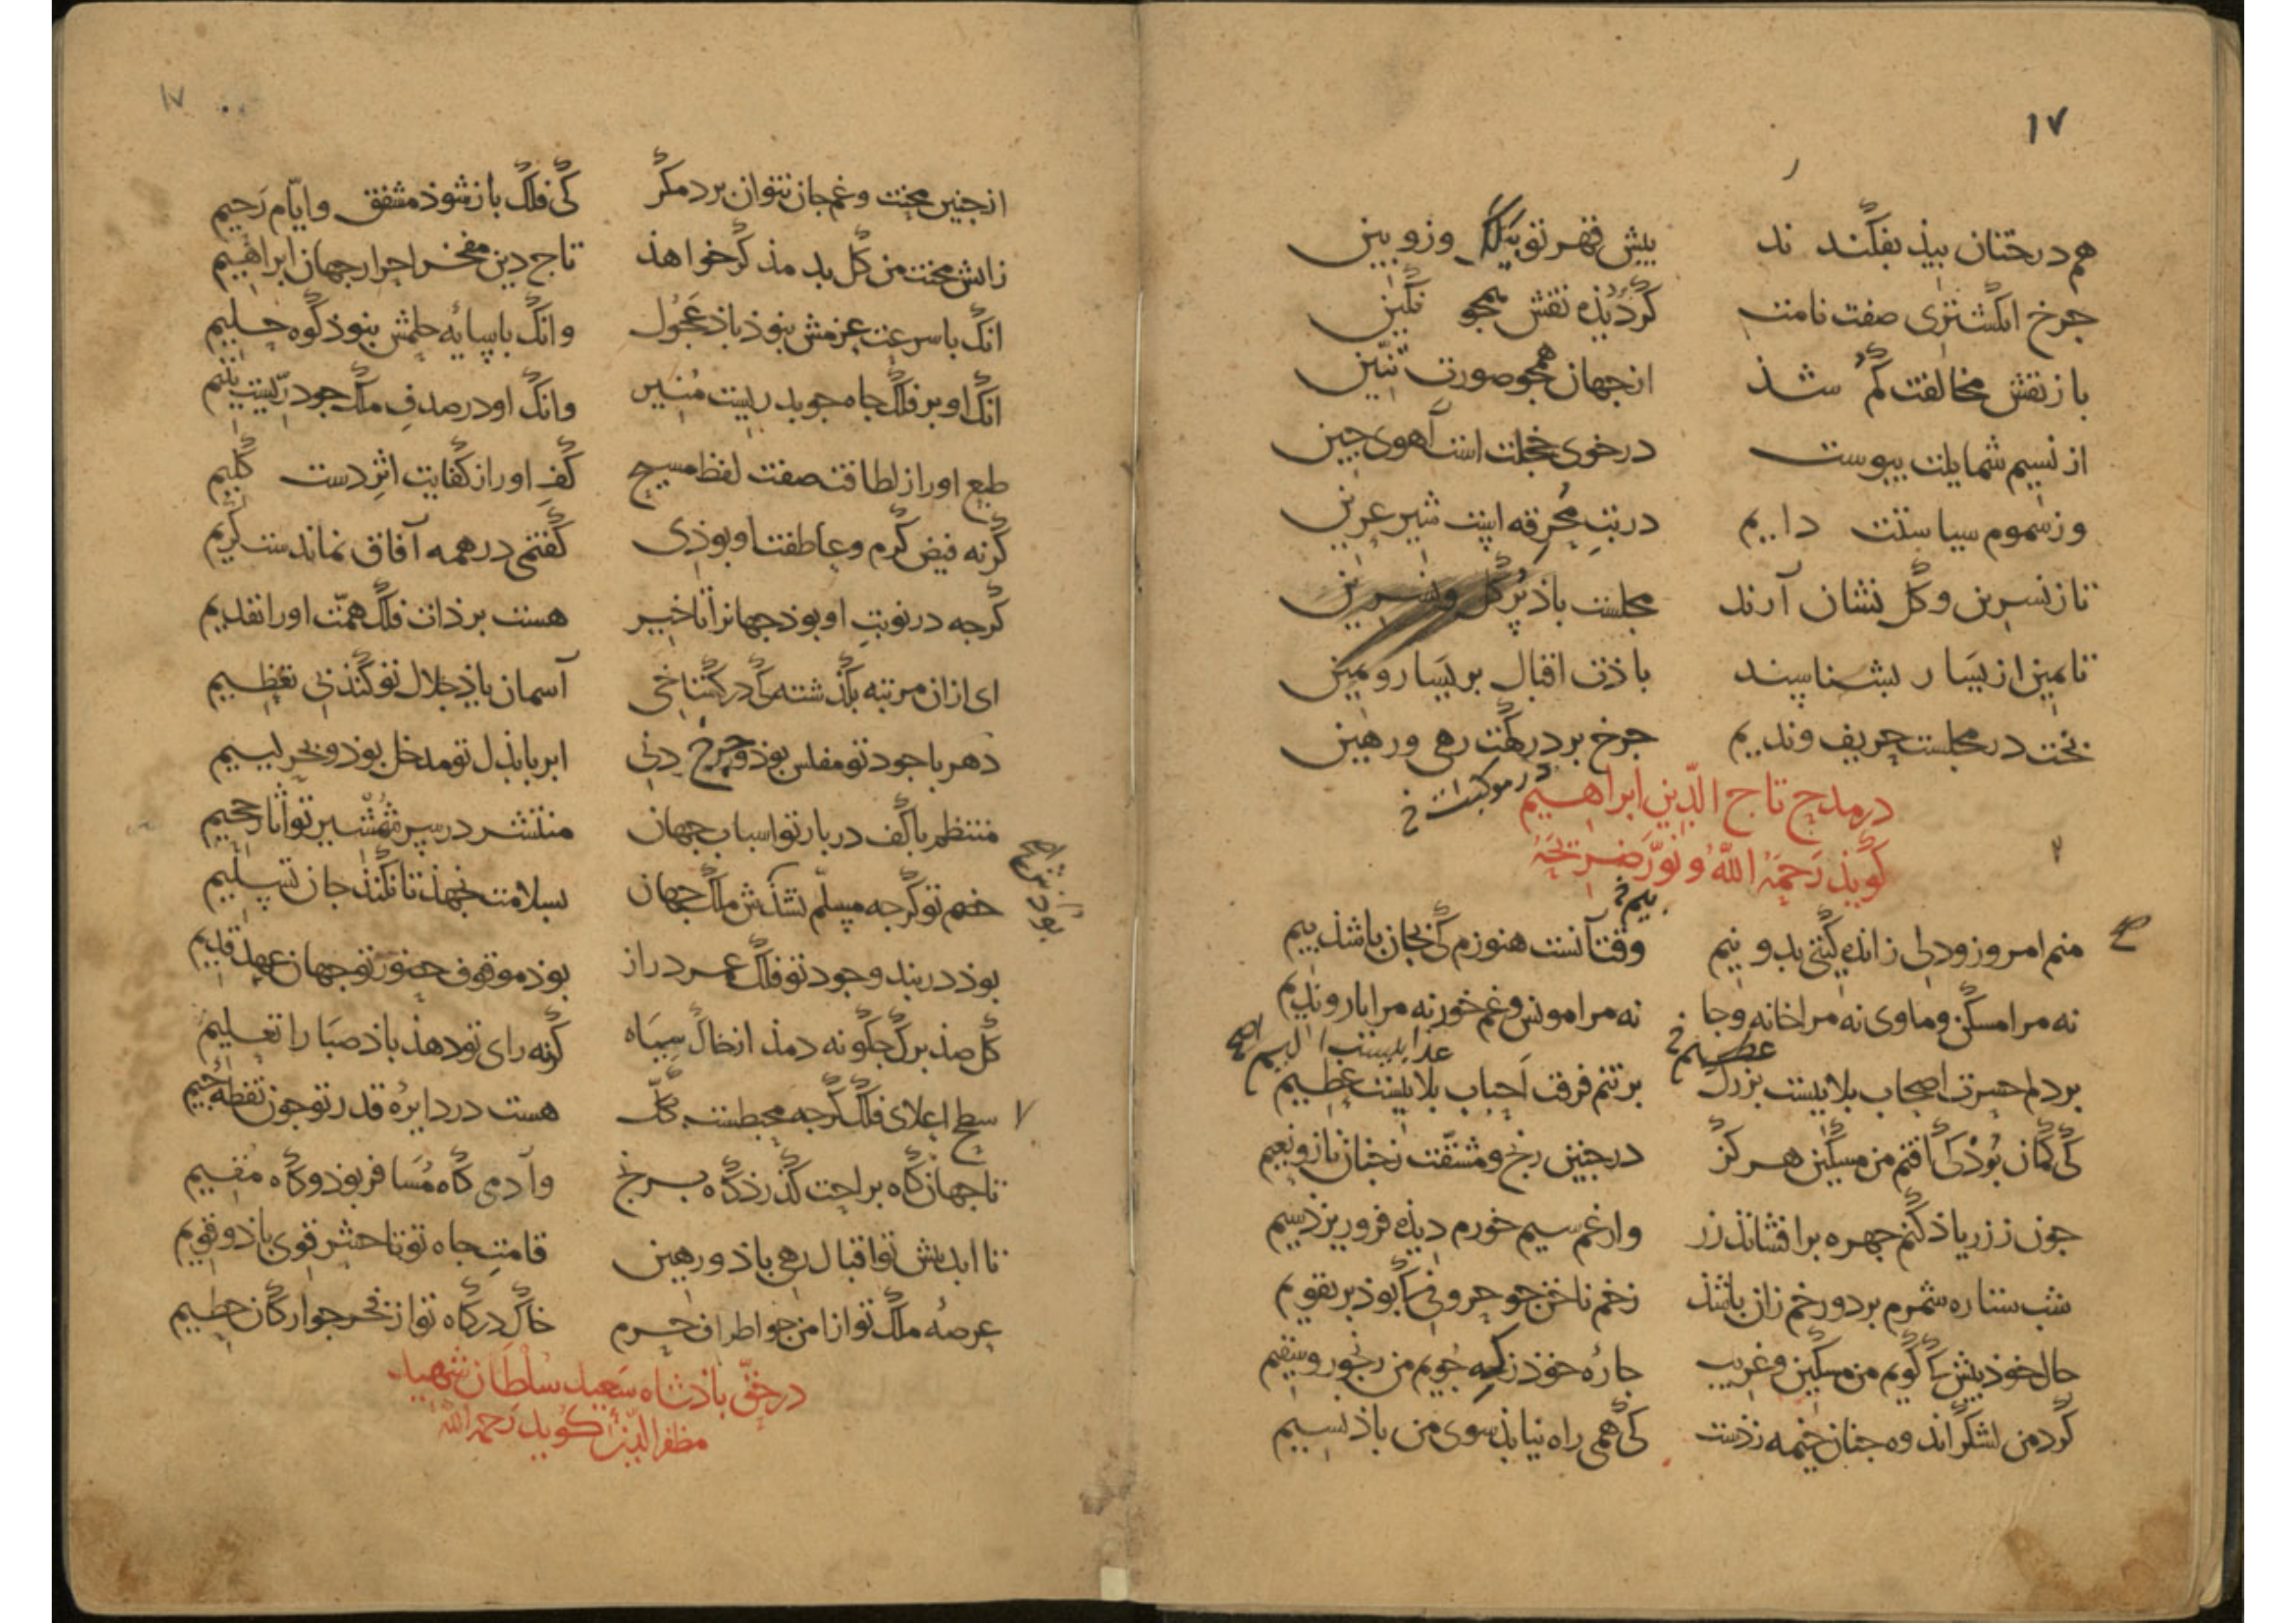 ١٧
هم درختان بیذ بفکند ند بیش قهر تو بیلک وزوبین
جرخ انکشتری صفت نامت کردیذه نقش همجو نکین
باز نقش مخالفت کم شذ از جهان همجو صورت تنین
از نسیم شمایلت ببوست در خوی خجلت است آهوی جین
وز سموم سیاستت دایم در تب محرقه اینت شیر عرین
تا ز نسرین و کل نشان آرند مجلست باذ پر کل و نسرین
تا یمین از یسار بشناسند باذت اقبال بر یسار و یمین
بخت در مجلست حریف و ندیم جرخ بر درکهت رهی و رهین
در موکبت خ
در مدح تاج الدین ابراهیم
کویذ رحمة الله و نور ضریحه
منم امروز و دلی ز انده کیتی بدو نیم وقت آنست هنوزم کی بجان باشذ بیم
نه مرا مسکن و ماوی نه مرا خانه و جا نه مرا مونس و غم خور نه مرا یار و ندیم
بر دلم حسرت اصحاب بلاییست بزرک بر تنم فرقت احباب بلاییست عظیم
کی کمان بوذ کی افتم من مسکین هرکز در جنین رنج و مشقت ز جنان ناز و نعیم
جون ز زر یاذ کنم جهره بر افشانذ زر و از غم سیم خورم دیذه فرو ریزذ سیم
شب ستاره شمرم بر دو رخم زان باشذ زخم ناخن جو حروفی کا بوذ بر تقویم
حال خوذ بیش کا کویم من مسکین و غریب جارهٔ خوذ ز که جویم من رنجور و سقیم
کرد من لشکر اندوه جنان خیمه زذست کی همی راه نیابذ سوی من باذ نسیم
١٧
از جنین محنت و غم جان نتوان برد مکر کی فلک باز شوذ مشفق و ایام رحیم
ز آتش محنت من کل بدمذ کر خواهذ تاج دین مفخر احرار جهان ابراهیم
انک با سرعت عزمش بنوذ باذ عجول وانک با سایهٔ حلمش بنوذ کوه حلیم
انک او بر فلک جاه جو بدریست منیر وانک او در صدف ملک جو دریست یتیم
طبع او را ز لطافت صفت لفظ مسیح کف او را ز کفایت اثر دست کلیم
کر نه فیض کرم و عاطفت او بوذی کفتمی در همه آفاق نماندست کریم
کرجه در نوبت او بوذ جهانرا تاخیر هست بر ذات فلک همت او را تقدیم
ای از ان مرتبه بکذشته کی در کستاخی آسمان یاذ جلال تو کند بی تعظیم
دهر با جود تو مفلس بوذ و جرخ دنی ابر با بذل تو مدخل بوذ و بحر لییم
منتظم با کف دربار تو اسباب جهان منتشر در سر شمشیر تو آثار جحیم
خصم تو کرجه مسلم نشذش ملک جهان بسلامت نجهذ تا نکنذ جان تسلیم
بوذ در بند وجود تو فلک عمر دراز بوذ موقوف حضور تو جهان عهد قدیم
کل صذ برک جکونه دمذ از خاک سیاه کرنه رای تو دهذ باذ صبا را تعلیم
سطح اعلای فلک کرجه محیطست بکل هست در دایرهٔ قدر تو جون نقطهٔ جیم
تا جهان کاه براحت کذرذ کاه برنج وآدمی کاه مسافر بوذ و کاه مقیم
تا ابد بش تو اقبال رهی باذ و رهین قامت جاه تو تا حشر قوی باذ و قویم
عرصهٔ ملک تو از امن جو اطراف حرم خاک درکاه تو از فخر جو ارکان حطیم
در حق باذشاه سعید سلطان شهید
مظفر الدین کوید رحمه الله